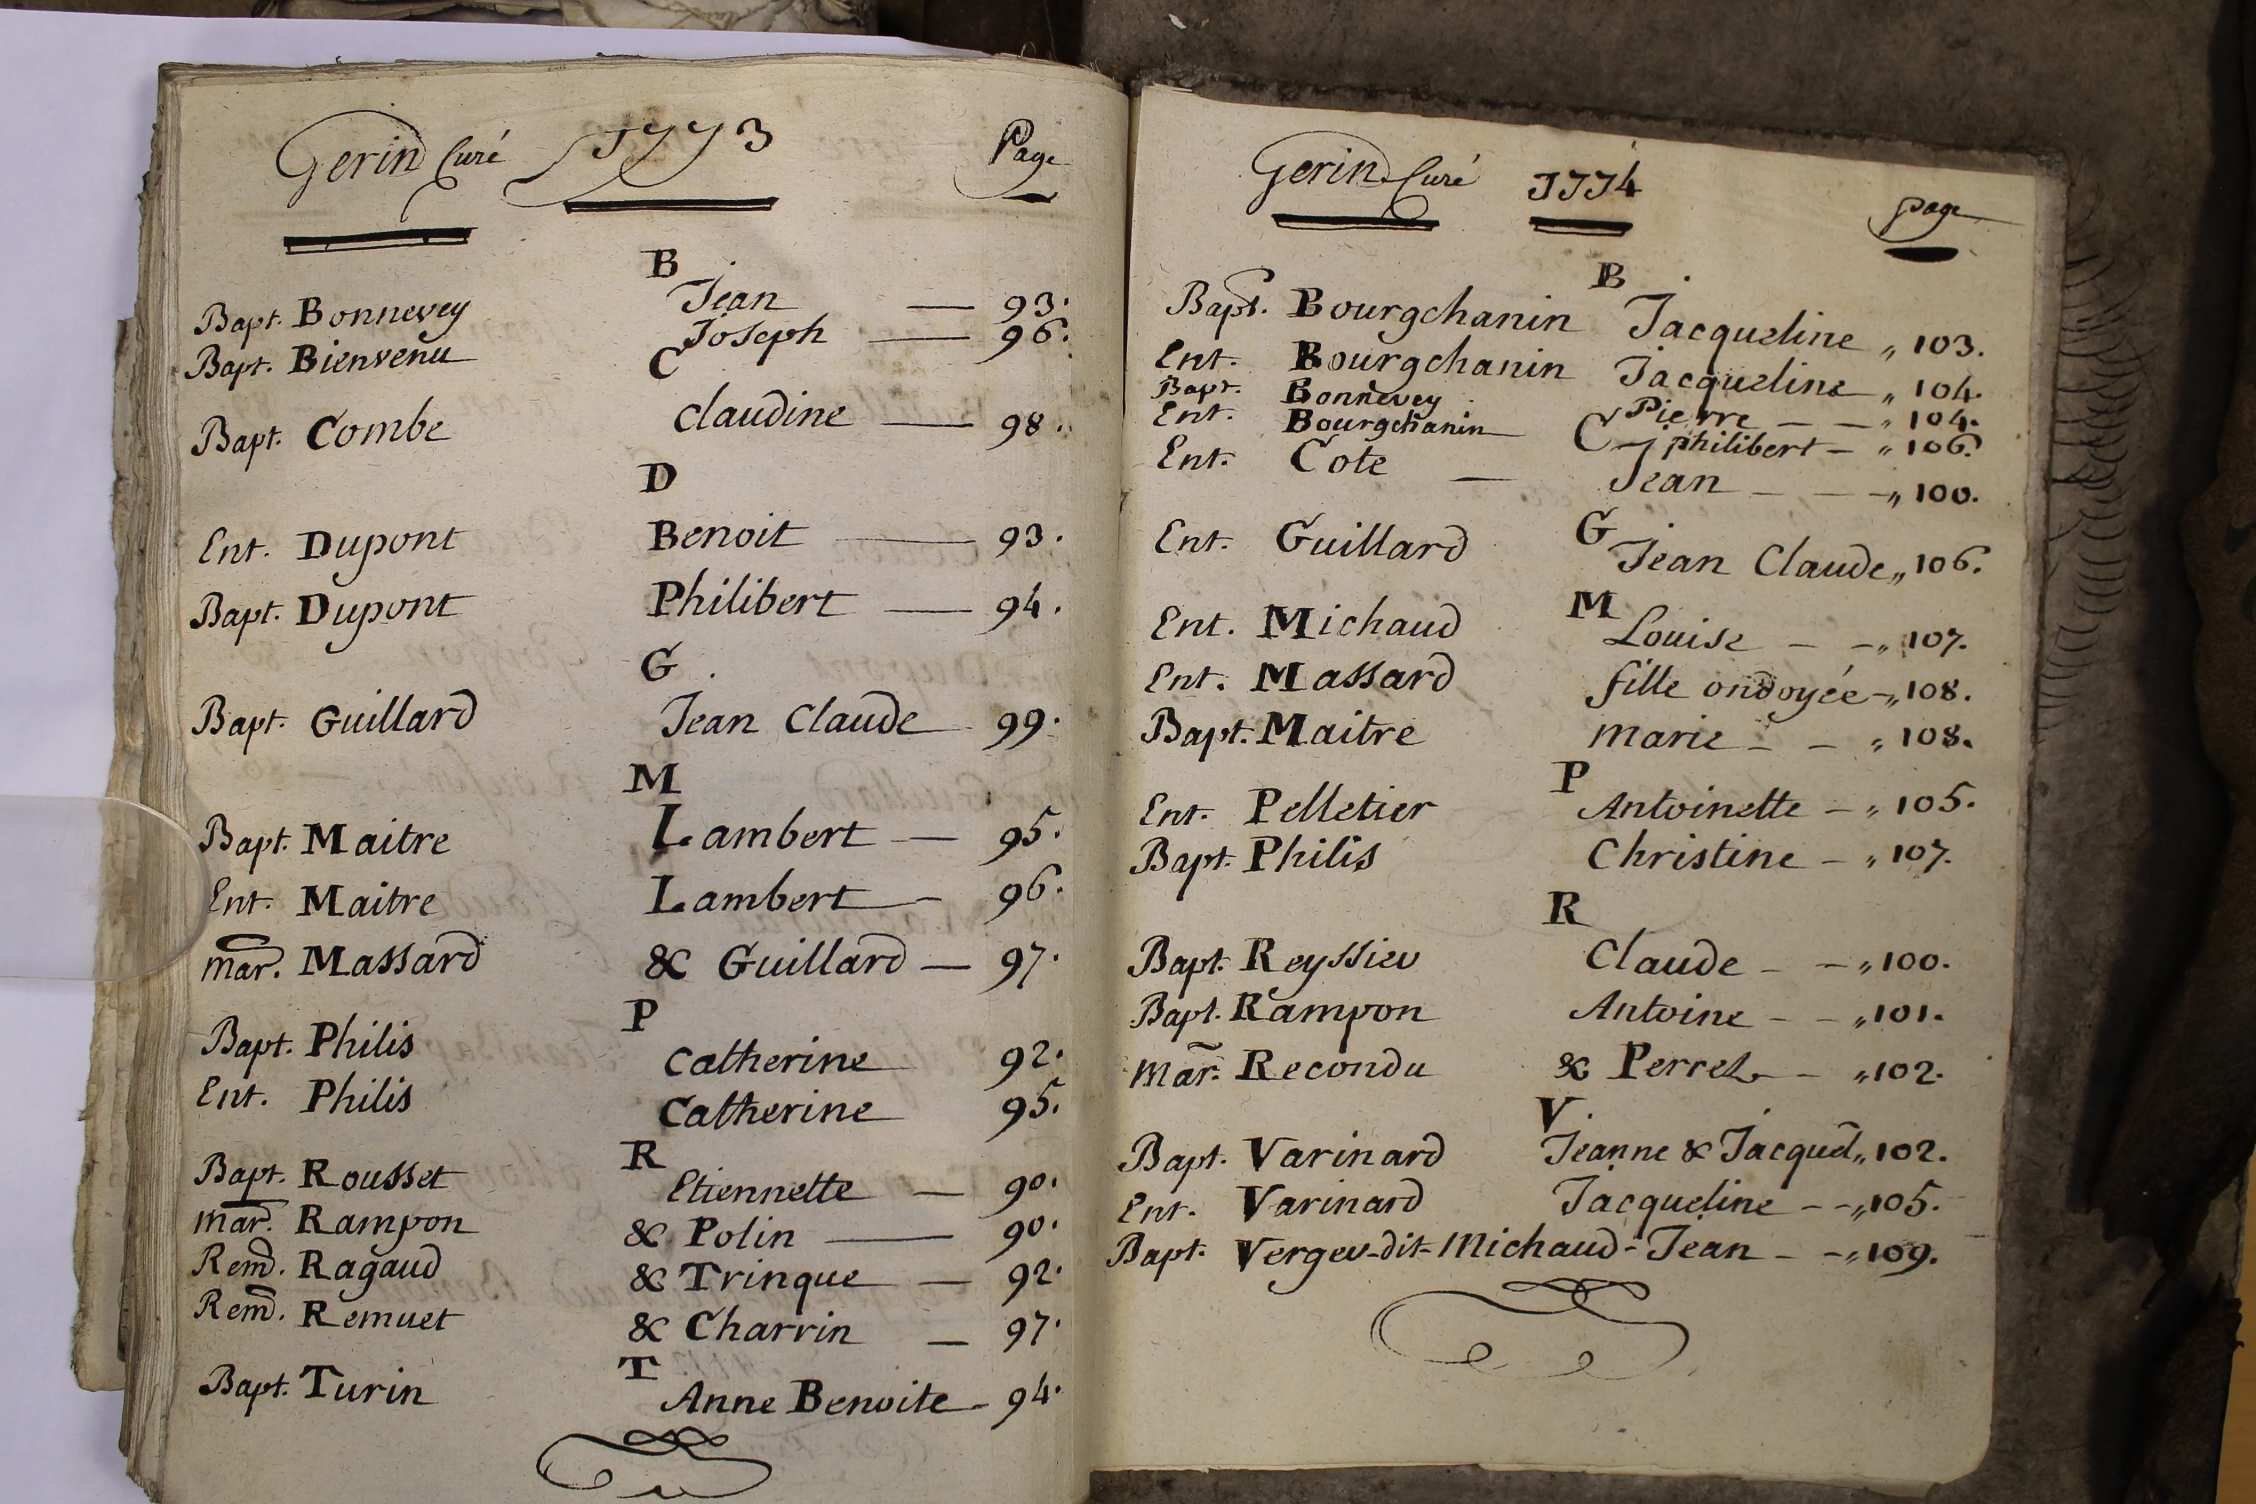 Gerin Curé 1773 Page
B
Bapt. Bonnevey Jean — 93.
Bapt. Bienvenu Joseph — 96.
C
Bapt. Combe Claudine — 98.
D
Ent. Dupont Benoit — 93.
Bapt. Dupont Philibert — 94.
G
Bapt. Guillard Jean Claude 99.
M
Bapt. Maitre Lambert — 95.
Ent. Maitre Lambert — 96.
Mar. Massard & Guillard — 97.
P
Bapt. Philis Catherine 92.
Ent. Philis Catherine 95.
R
Bapt. Rousset Etiennette — 90.
Mar. Rampon & Polin — 90.
Remd. Ragaud & Trinque — 92.
Remd. Remuet & Charrin — 97.
T
Bapt. Turin Anne Benoite - 94.
Gerin Curé 1774 page
B
Bapt. Bourgchanin Jacqueline „ 103.
Ent. Bourgchanin Jacqueline „ 104.
Bapt. Bonnevey Pierre — — „ 104.
Ent. Bourgchanin philibert — „ 106.
C
Ent. Cote — Jean — — „ 100.
G
Ent. Guillard Jean Claude „ 106.
M
Ent. Michaud Louise — — „ 107.
Ent. Massard fille ondoyée — „ 108.
Bapt. Maitre Marie — — „ 108.
P
Ent. Pelletier Antoinette — „ 105.
Bapt. Philis Christine — „ 107.
R
Bapt. Reyssieu Claude — — „ 100.
Bapt. Rampon Antoine — — „ 101.
Mar. Recondu & Perret — „ 102.
V
Bapt. Varinard Jeanne & Jacquel „ 102.
Ent. Varinard Jacqueline — — „ 105.
Bapt. Vergeu-dit-Michaud-Jean — — „ 109.